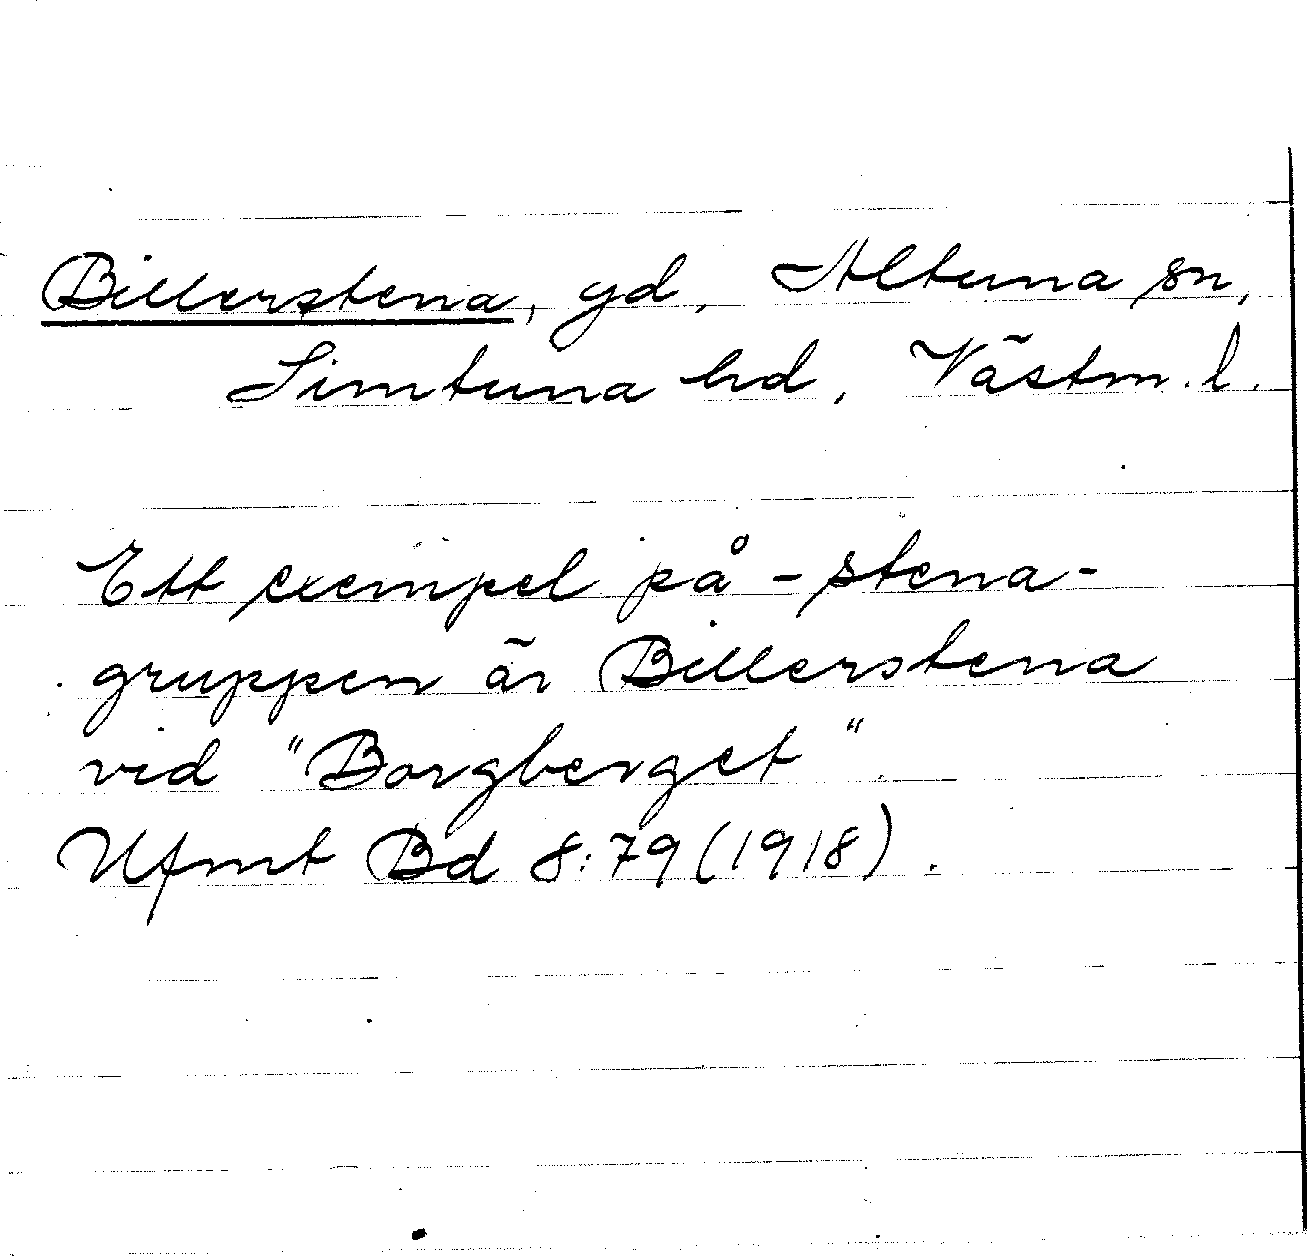 Billerstena, gd, Altuna sn,
Simtuna hd, Västm. l.
Ett exempel på -stena-
gruppen är Billerstena
vid "Borgberget".
Ufmt Bd 8:79 (1918).